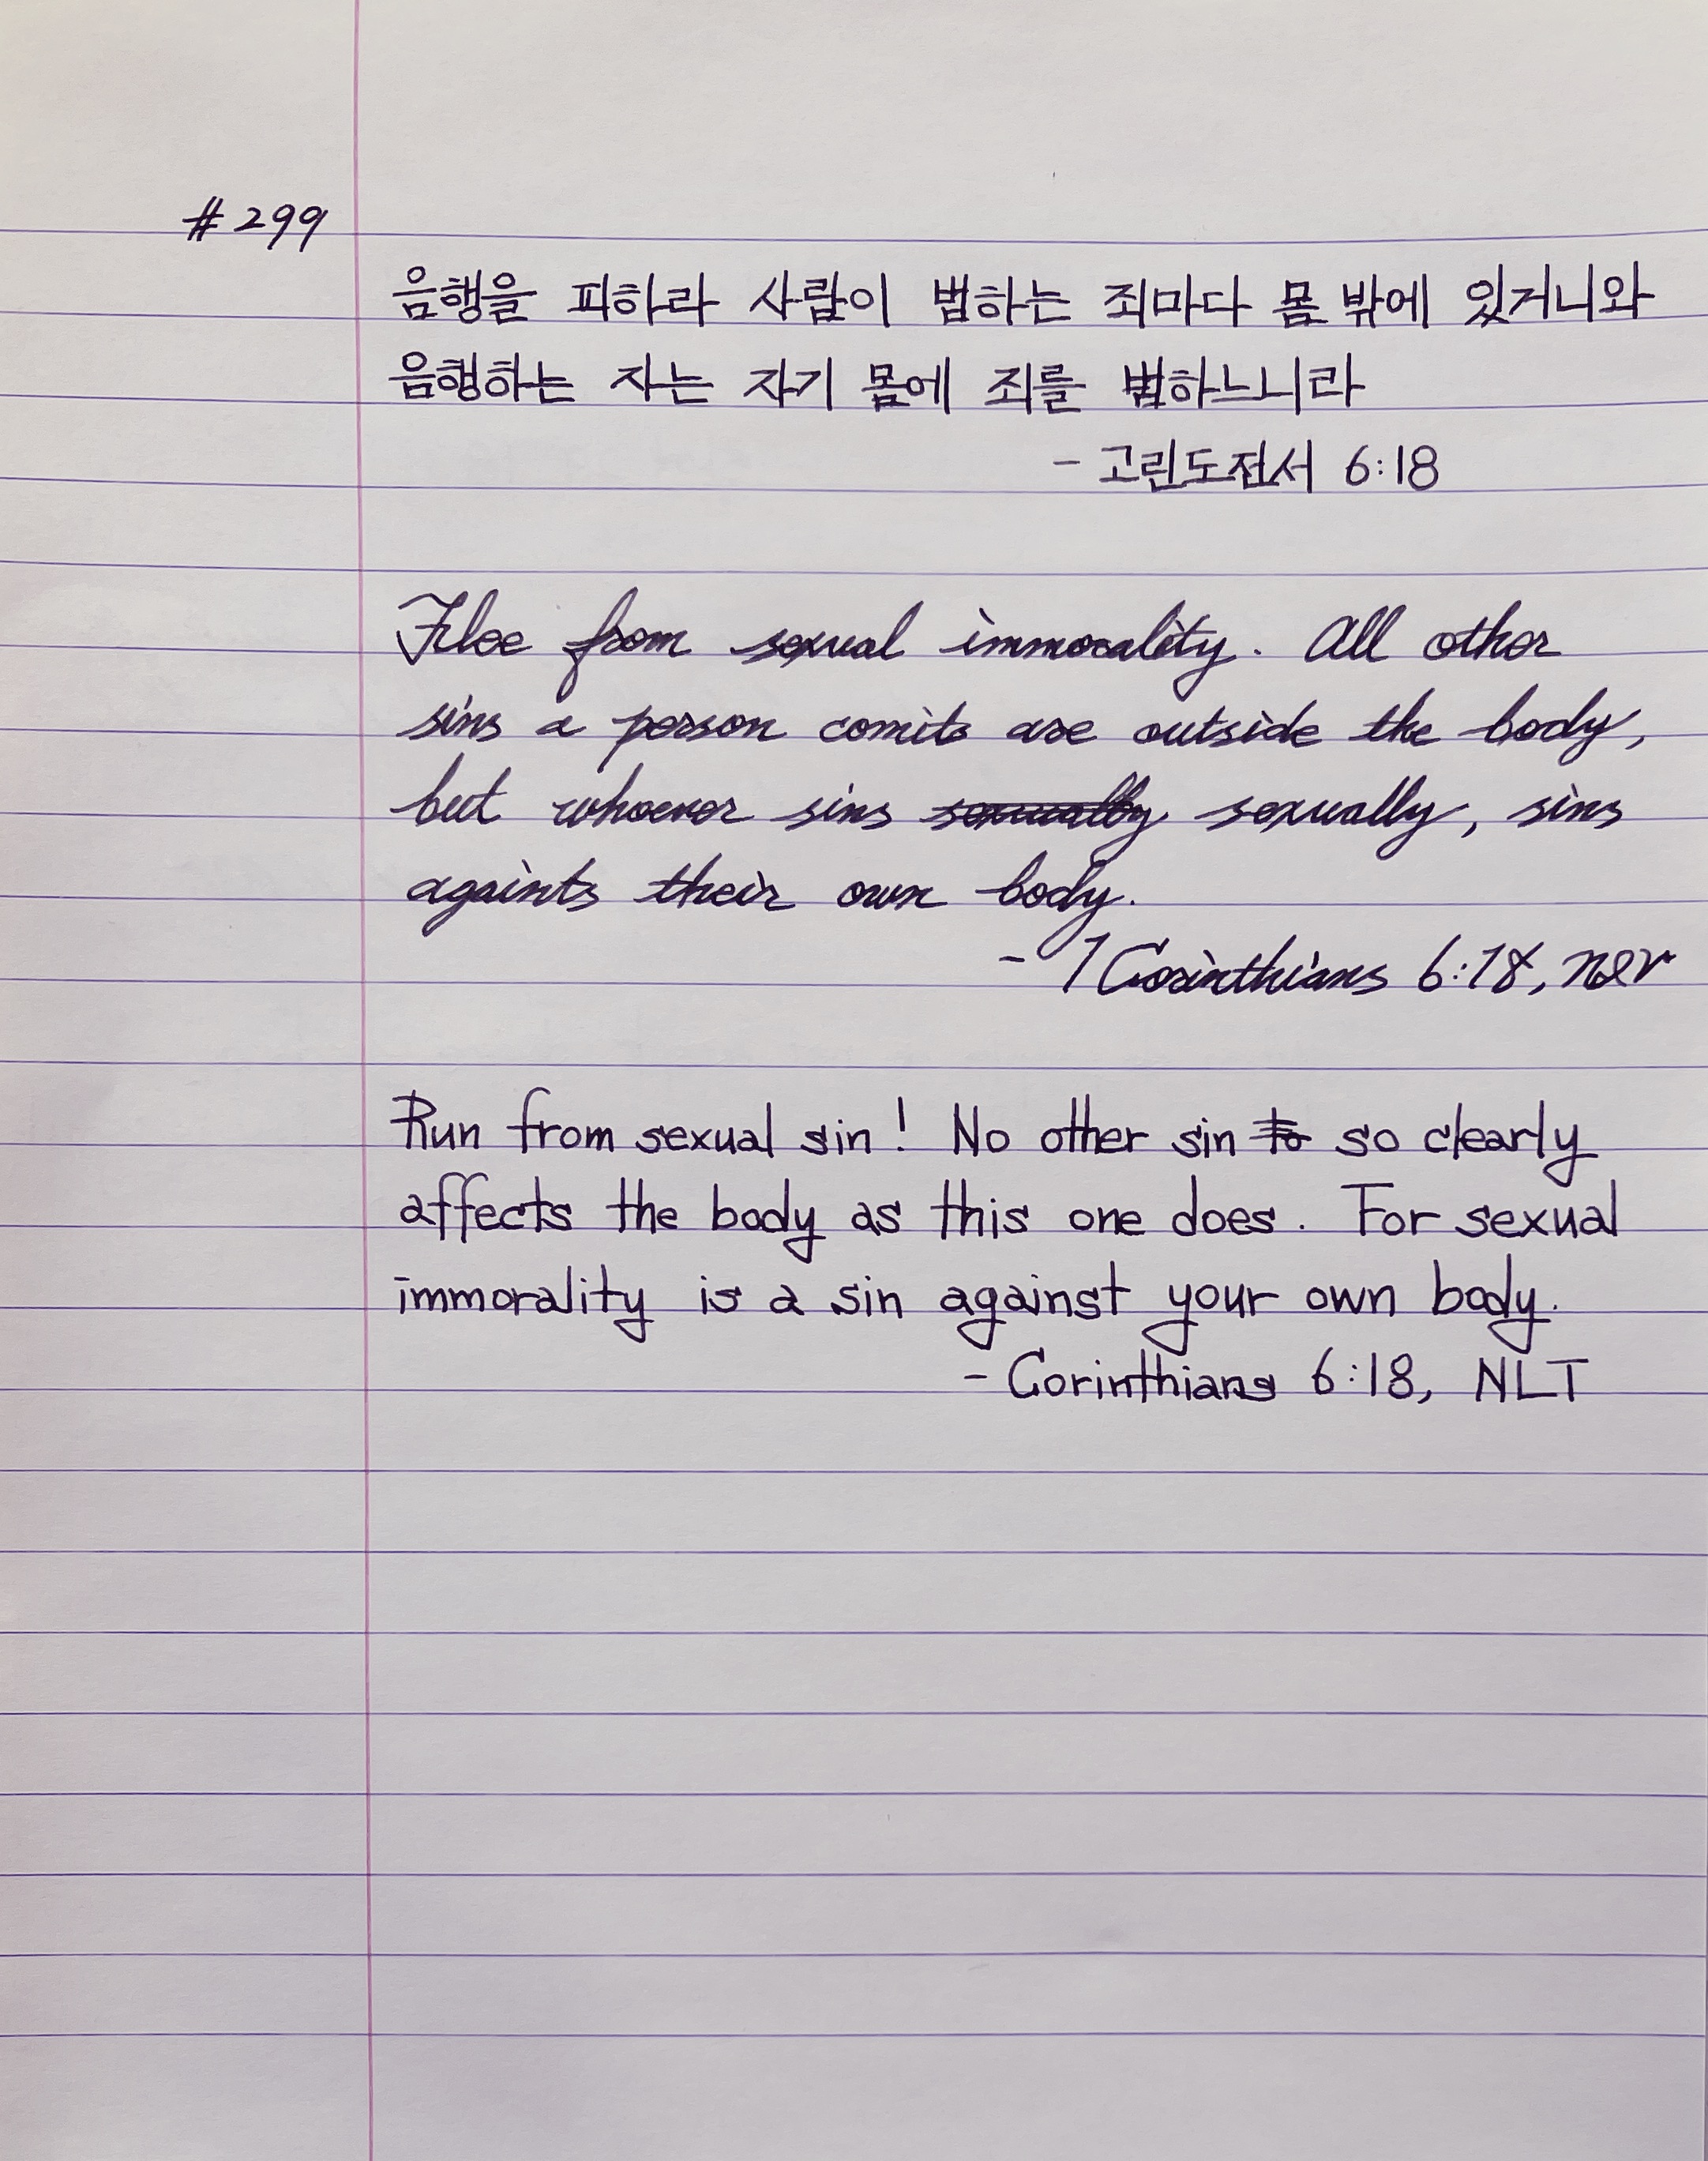 #299
음행을 피하라 사람이 범하는 죄마다 몸 밖에 있거니와
음행하는 자는 자기 몸에 죄를 범하느니라
- 고린도전서 6:18
Flee from sexual immorality. All other
sins a person comits are outside the body,
but whoever sins sexually sexually, sins
againts their own body.
- 1 Corinthians 6:18, NIV
Run from sexual sin! No other sin to so clearly
affects the body as this one does. For sexual
immorality is a sin against your own body.
- Corinthians 6:18, NLT